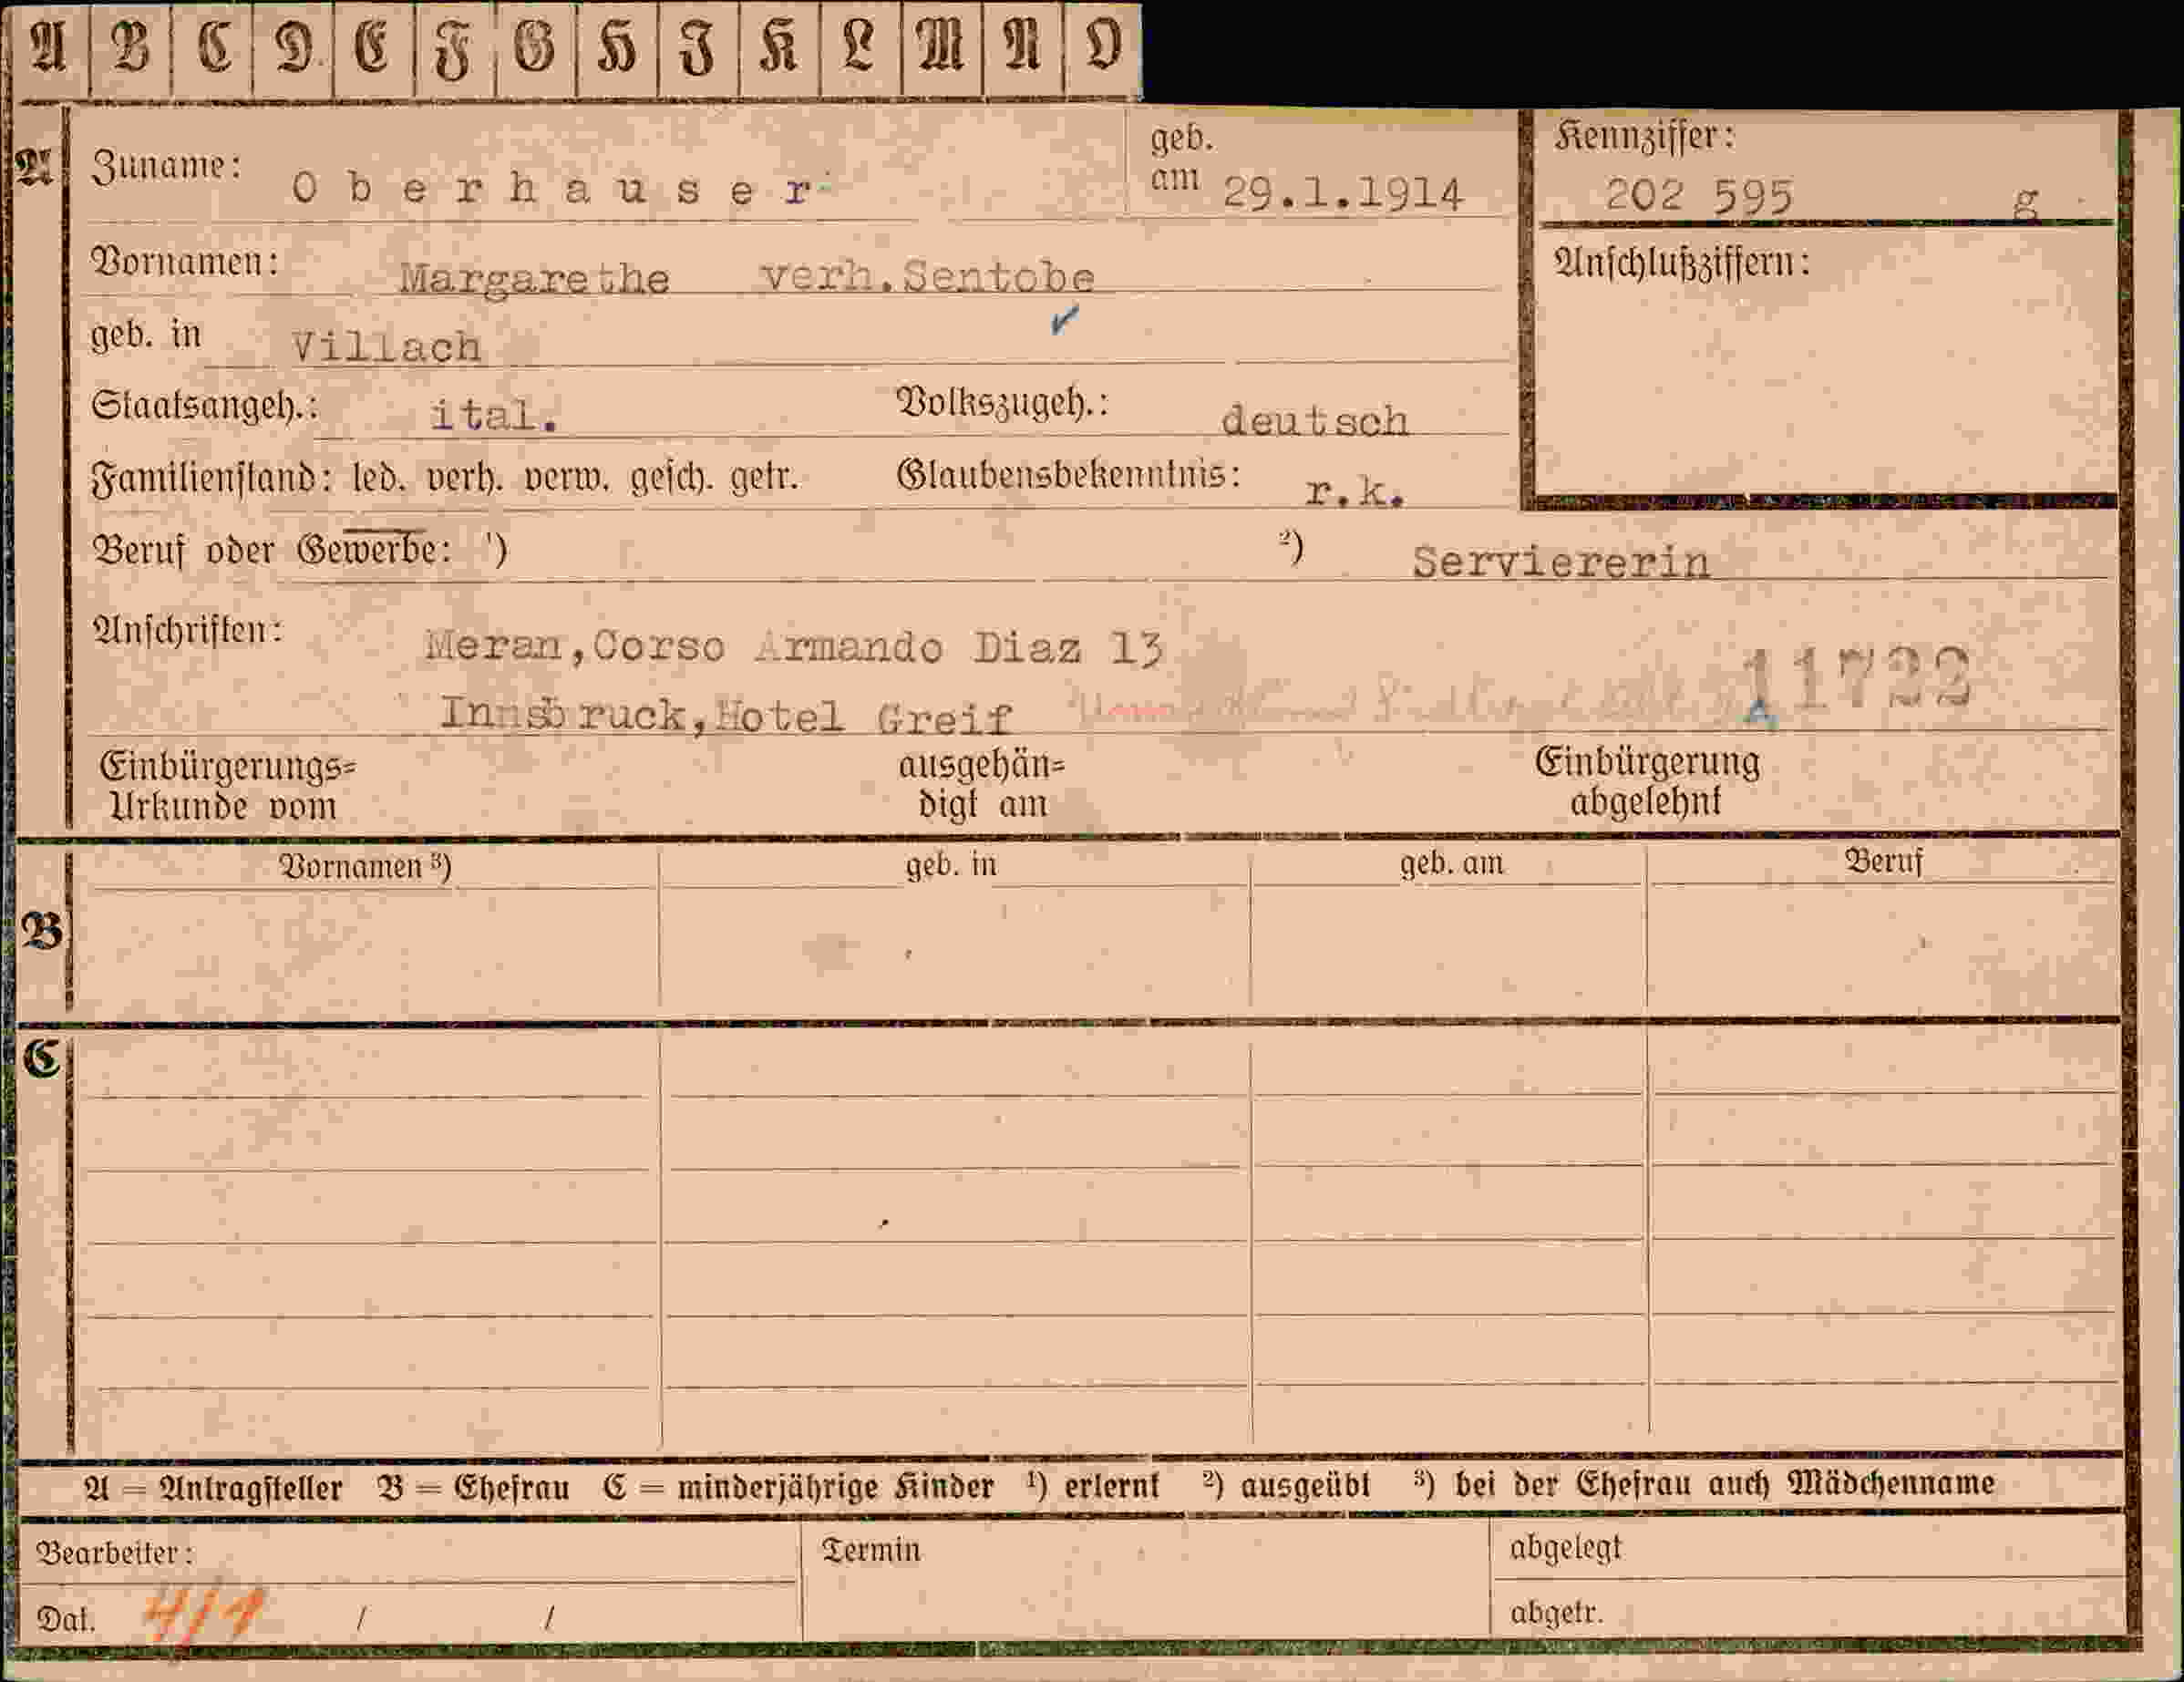 A B C D E F G H I K L M N O
A Zuname: Oberhauser geb. am 29.1.1914 Kennziffer: 202 595 g
Vornamen: Margarethe verh.Sentobe Anschlußziffern:
geb. in Villach
Staatsangeh.: ital. Volkszugeh.: deutsch
Familienstand: led. verh. verw. gesch. getr. Glaubensbekenntnis: r.k.
Beruf oder Gewerbe: ¹) ²) Serviererin
Anschriften: Meran,Corso Armando Diaz 13
Innsbruck,Hotel Greif 11722
Einbürgerungs= ausgehän= Einbürgerung
Urkunde vom digt am abgelehnt
Vornamen ³) geb. in geb. am Beruf
B
C
A = Antragsteller B = Ehefrau C = minderjährige Kinder ¹) erlernt ²) ausgeübt ³) bei der Ehefrau auch Mädchenname
Bearbeiter: Termin abgelegt
Dat. 4/1 / / abgetr.